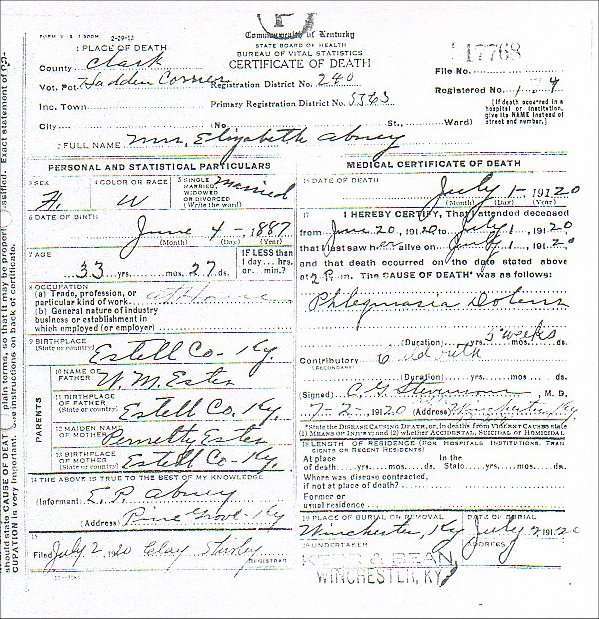 2-29-12
Commonwealth of Kentucky
STATE BOARD OF HEALTH
BUREAU OF VITAL STATISTICS
CERTIFICATE OF DEATH
1 PLACE OF DEATH
County Clark
Vot. Pct. Hadden Corner
Registration District No. 240
File No. 17768
Inc. Town
Primary Registration District No. 5563
Registered No.
[If death occurred in a hospital or institution, give its NAME instead of street and number.]
City No. St., Ward)
2 FULL NAME Mrs. Elizabeth Abney
PERSONAL AND STATISTICAL PARTICULARS
3 SEX F.
4 COLOR OR RACE W
5 SINGLE MARRIED, WIDOWED OR DIVORCED (Write the word) Married
6 DATE OF BIRTH
June 4 1887
(Month) (Day) (Year)
7 AGE
33 yrs. mos. 27 ds.
IF LESS than 1 day... hrs. or min.?
8 OCCUPATION
(a) Trade, profession, or particular kind of work At Home
(b) General nature of industry business or establishment in which employed (or employer)
9 BIRTHPLACE
(State or country) Estell Co. Ky.
PARENTS
10 NAME OF FATHER W. M. Estes
11 BIRTHPLACE OF FATHER (State or country) Estell Co. Ky.
12 MAIDEN NAME OF MOTHER Estes
13 BIRTHPLACE OF MOTHER (State or country) Estell Co. Ky.
14 THE ABOVE IS TRUE TO THE BEST OF MY KNOWLEDGE
(Informant) E. P. Abney
(Address) Pine Grove Ky
15
Filed July 2, 1920 Clay Shirley
REGISTRAR
MEDICAL CERTIFICATE OF DEATH
16 DATE OF DEATH
July 1 - 1920
(Month) (Day) (Year)
17 I HEREBY CERTIFY, That I attended deceased
from June 20, 1920 to July 1, 1920
that I last saw her alive on July 1, 1920
and that death occurred on the date stated above
at 2 P. m. The CAUSE OF DEATH* was as follows:
Phlegmasia Dolens
(Duration) yrs. mos. ds. 3 weeks
Contributory Child birth
(SECONDARY)
(Duration) yrs. mos. ds.
(Signed) M. D.
1920 (Address) Winchester, Ky
*State the DISEASE CAUSING DEATH, or, in deaths from VIOLENT CAUSES state (1) MEANS OF INJURY; and (2) whether ACCIDENTAL, SUICIDAL OR HOMICIDAL
18 LENGTH OF RESIDENCE (FOR HOSPITALS, INSTITUTIONS, TRANSIENTS OR RECENT RESIDENTS)
At place of death yrs. mos. ds. In the State yrs. mos. ds.
Where was disease contracted, if not at place of death?
Former or usual residence
19 PLACE OF BURIAL OR REMOVAL
Winchester, Ky
DATE OF BURIAL
July 2, 1920
20 UNDERTAKER
ADDRESS
BEAN
WINCHESTER, KY